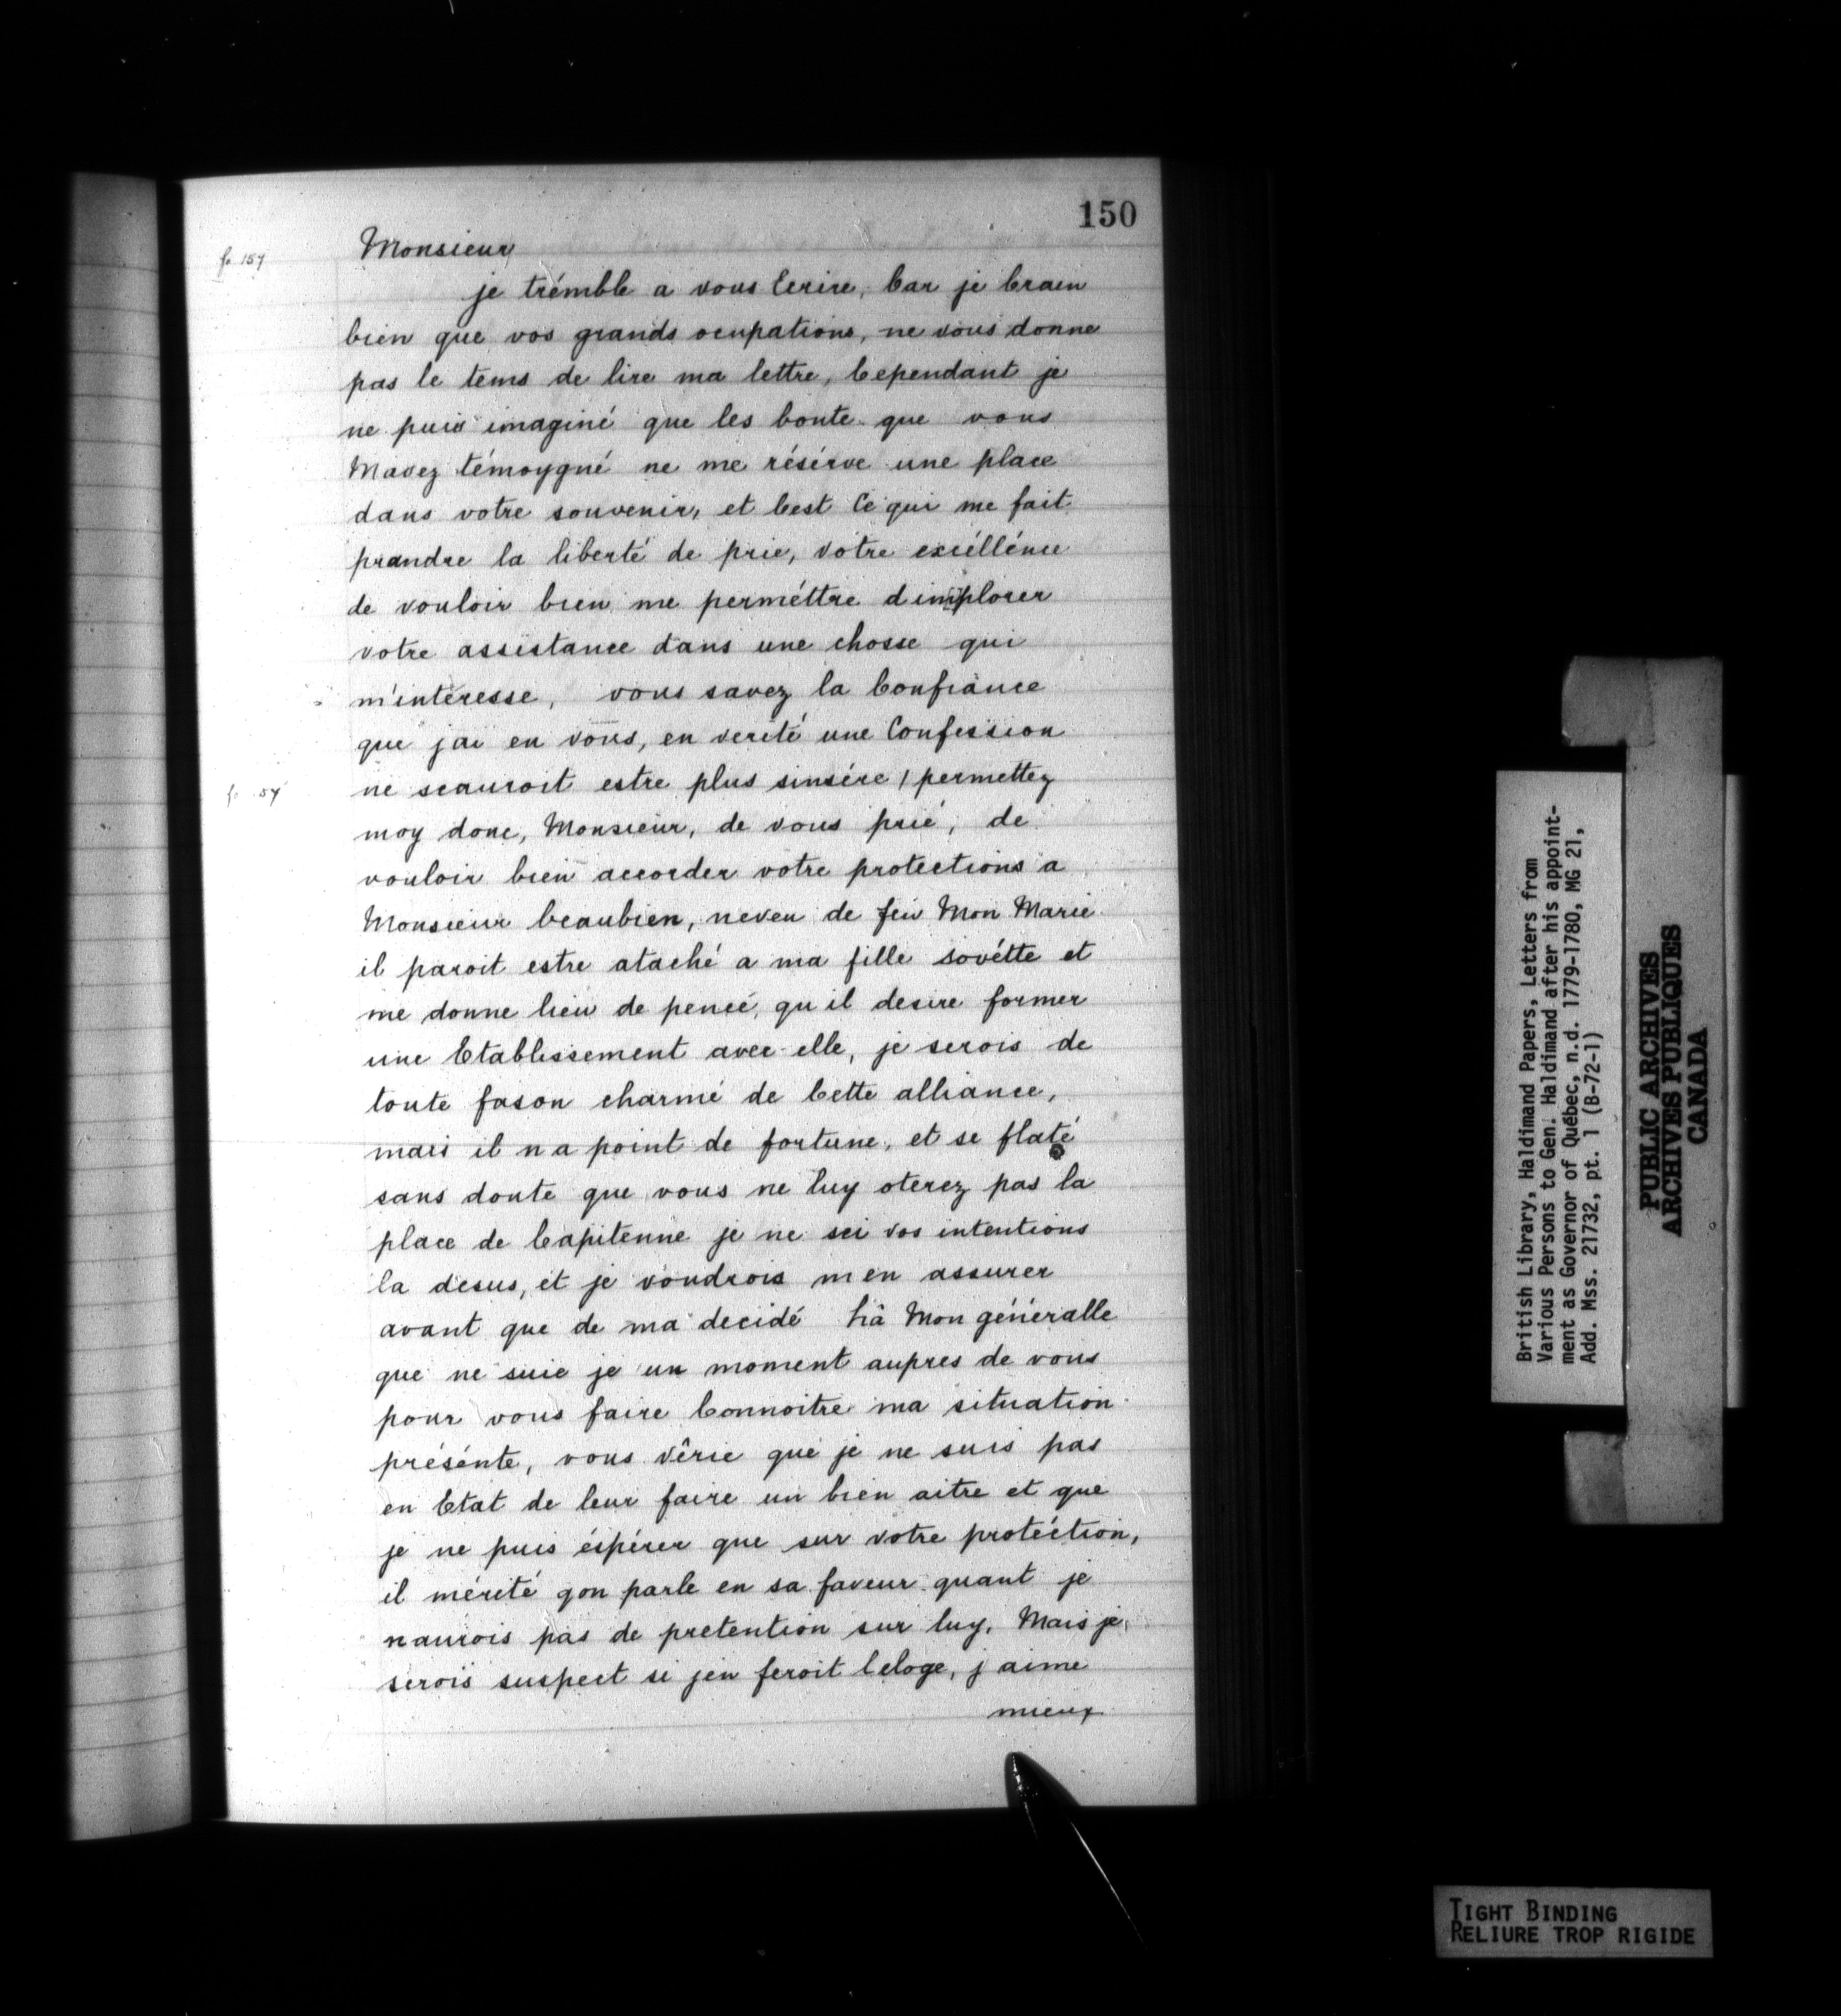 150
fo 157
Monsieur
je trémble a vous Ecrire, Car je Crain
bien que vos grands ocupations, ne vous donne
pas le tems de lire ma lettre, Cependant je
ne puis imaginé que les bonte que vous
Mavez témoygné ne me résérve une place
dans votre souvenir, et Cest Ce qui me fait
prandre la liberté de prie, votre excéllénce
de vouloir bien me perméttre dimplorer
votre assistance dans une chosse qui
m'intéresse, vous savez la Confiance
que jai en vous, en verité une Confession
ne scauroit estre plus sinsére, permettez
moy donc, Monsieur, de vous prié, de
vouloir bien accorder votre protections a
Monsieur beaubien, neveu de feu Mon Marie
il paroit estre ataché a ma fille sovétte et
me donne lieu de pencé, qu il desire former
une Etablissement avec elle, je serois de
toute fason charmé de Cette alliance,
mais il n a point de fortune, et se flaté
sans doute que vous ne luy oterez pas la
place de Capitenne je ne sei vos intentions
la desus, et je voudrois m en assurer
avant que de ma decidé hâ Mon générralle
que ne suie je un moment aupres de vous
pour vous faire Connoitre ma situation
présénte, vous vêrie que je ne suis pas
en Etat de leur faire un bien aitre et que
je ne puis éspérer que sur votre protéction,
il mérité qon parle en sa faveur quant je
naurois pas de pretention sur luy, Mais je
serois suspect si jen feroit leloge, j aime
mieux
British Library, Haldimand Papers, Letters from
Various Persons to Gen. Haldimand after his appoint-
ment as Governor of Québec, n.d. 1779-1780, MG 21,
Add. Mss. 21732, pt. 1 (B-72-1)
PUBLIC ARCHIVES
ARCHIVES PUBLIQUES
CANADA
TIGHT BINDING
RELIURE TROP RIGIDE